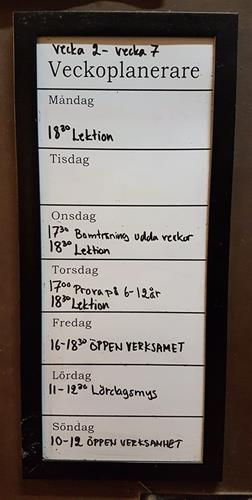 Vecka 2- vecka 7
Veckoplanerare
Måndag
18³⁰ Lektion
Tisdag
Onsdag
17³⁰ Bomträning udda veckor
18³⁰ Lektion
Torsdag
17⁰⁰ Prova på 6-12år
18³⁰ Lektion
Fredag
16-18³⁰ ÖPPEN VERKSAMET
Lördag
11-12³⁰ Lördagsmys
Söndag
10-12 ÖPPEN VERKSAMHET